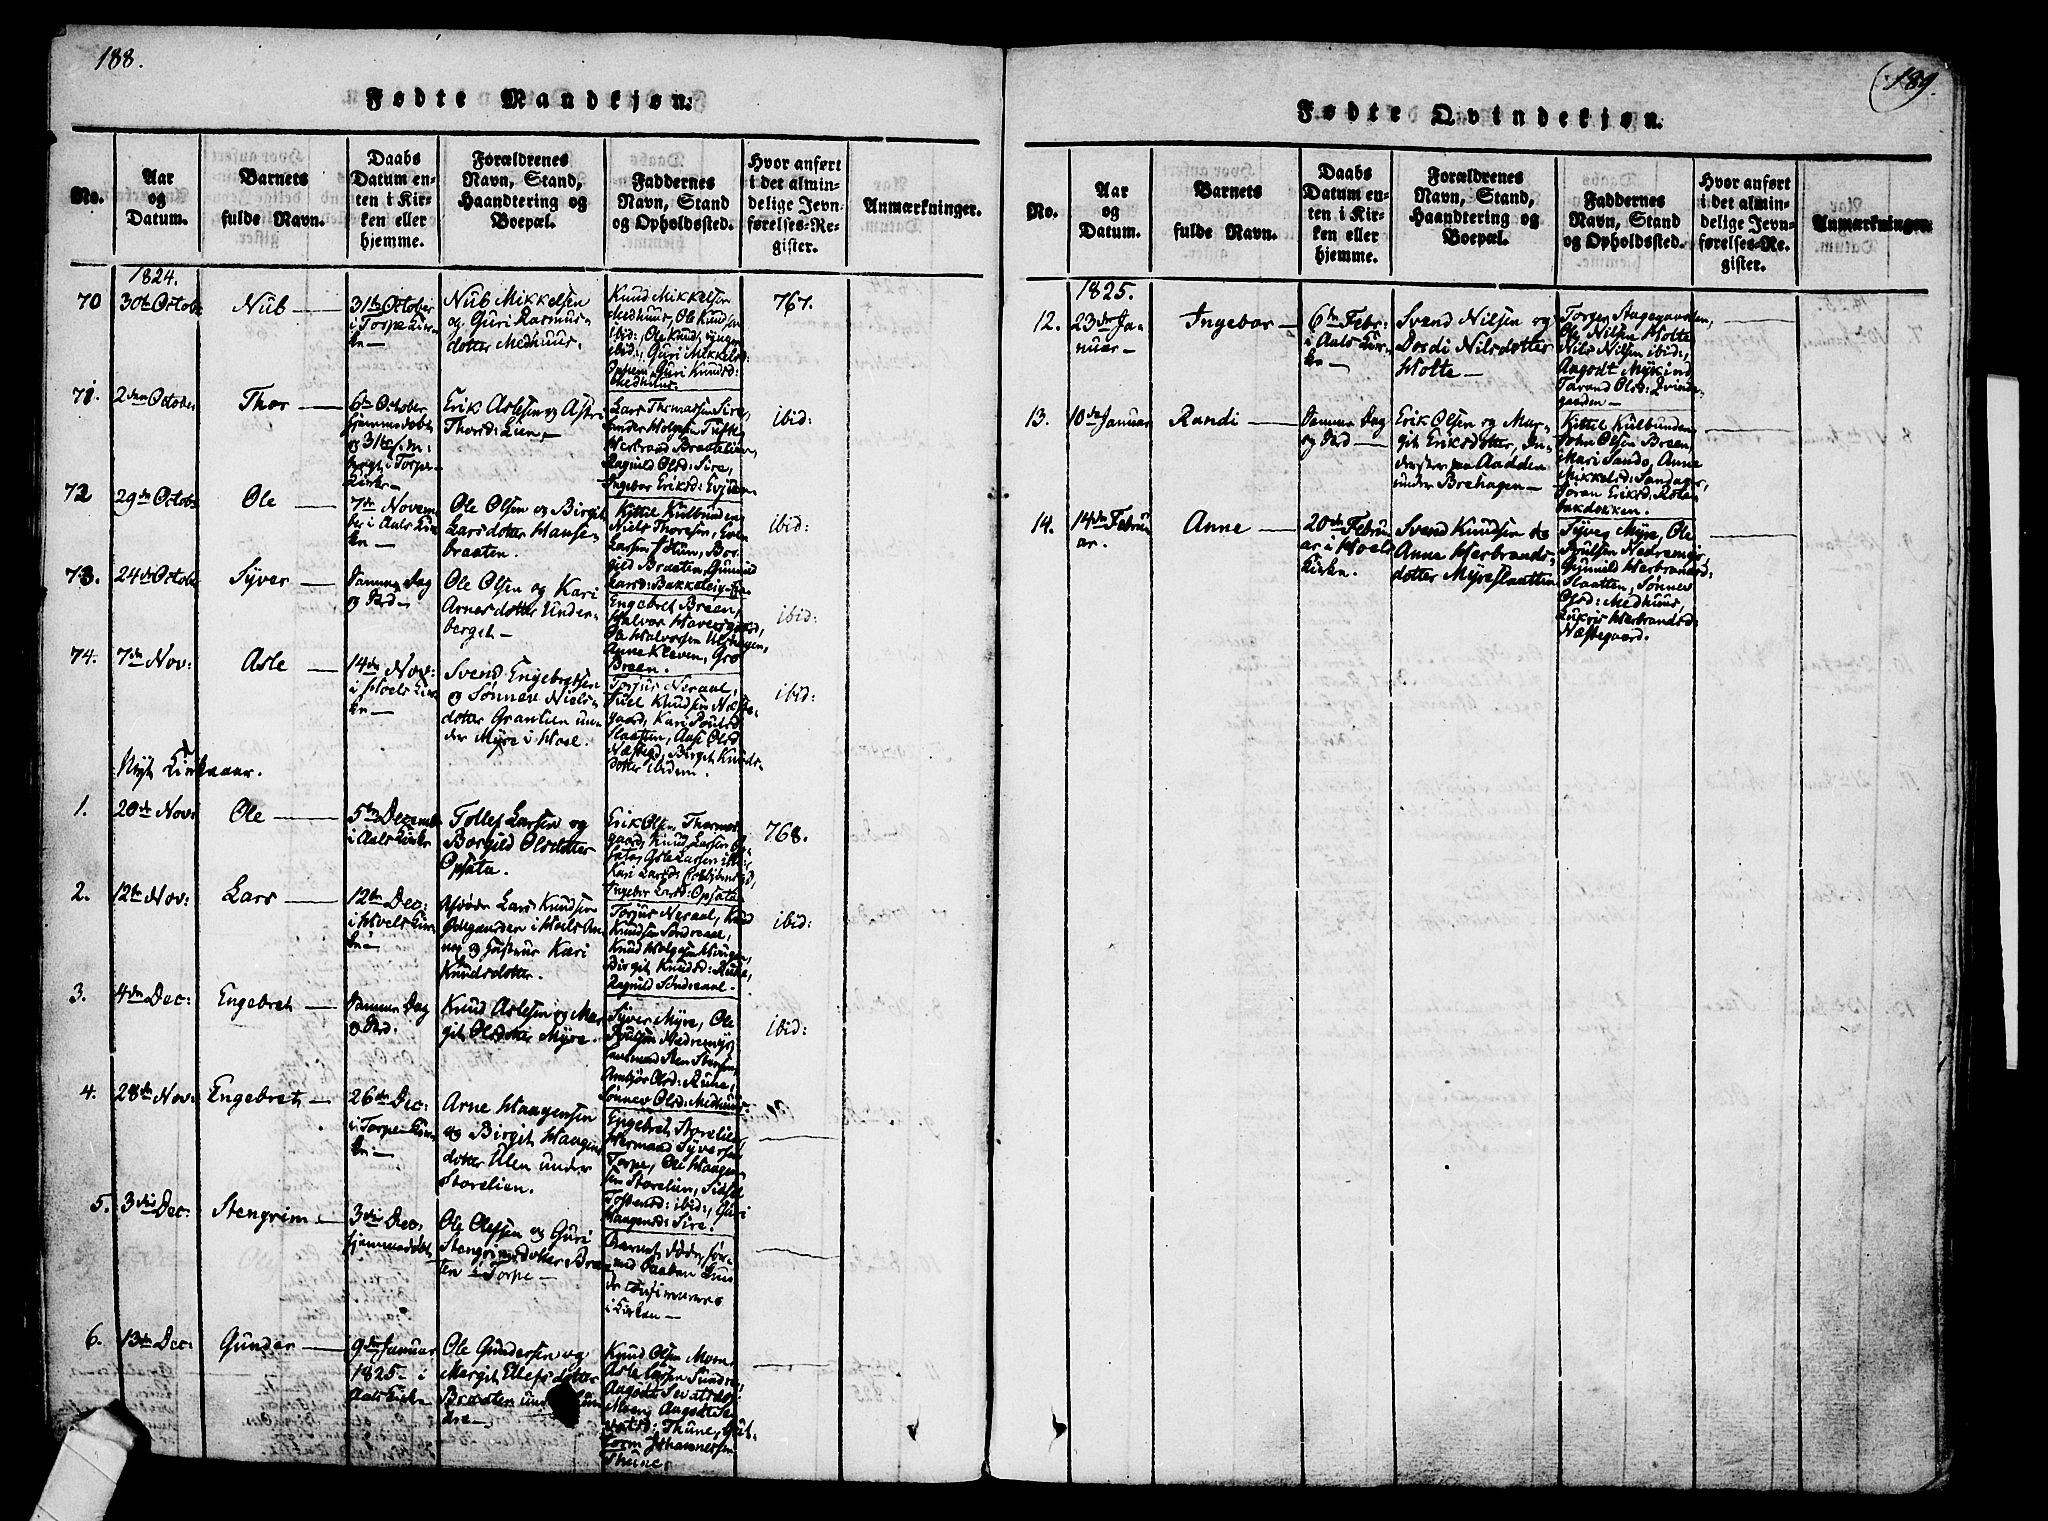 188.
Fødte Mandkjøn.
No.
Aar
og
Datum.
Barnets
fulde Navn.
Daabs
Datum en-
ten i Kir-
ken eller
hjemme.
Forældrenes
Navn, Stand,
Haandtering og
Boepæl.
Faddernes
Navn, Stand
og Opholdssted.
Hvor anført
i det almin-
delige Jevn-
førelses-Re-
gister.
Anmærkninger.
1824.
70
30te Octobr
Nub —
31te October
i Torpe Kir-
ken —
Nub Mikkelsen
og Guri Rasmus-
dotter Medhuus.
Knud Mikkelsen
Medhuus, Ole Knudsen
ibid:, Ole Knuds: yngre
ibid:, Guri Mikkelsd:
Guri Knudsd:
Medhuus.
767.
71.
2den October
Thor —
6te October
hjemmedøbt
og 31te
i Torpe
Kirke —
Erik Aslesen og Astri
Thorsd: Lien —
Lars Thomassen Sire,
Herbrand Braatelien,
Ragnild Olsd: Sire,
Ingebor Eriksd:
ibid:
72
29de Octobr
Ole —
7de Novem-
ber i Aals Kir-
ken —
Ole Olsen og Birgit
Larsdotter Hanse-
braaten.
Kittil Kulbunden
Niels Thoresen, Even
Larsen
Braaten, Gunnild
Larsd:
ibid:
73.
24de Octobr
Syver —
Samme Dag
og Sted —
Ole Olsen og Kari
Arnesdotter Under-
berget —
Engebret Breen,
Halvor
Ole Halvorsen
Anne Kleven, Gro
Breen.
ibid:
74.
7de Nov:
Asle —
14de Nov:
i Hoels Kir-
ke —
Svend Engebretsen
og Sønnev Niels-
dotter Granlien un-
der Myre i Hoel.
Torjus Neraal,
Knudsen Næste-
gaard, Kari Poulsd:
Slaatten, Aase Olsd
Næstegd, Birgit Knuds-
dotter ibidem.
ibid:
Nyt Kirkeaar.
1.
20de Nov:
Ole —
5te Decemb
i Aals Kirke
Tollef Larsen og
Borgild Olsdotter
Opsata.
Erik Olsen Thormods
gaard, Knud Larsen Op-
sata, Asle Larsen ibid:
Kari Larsd:
Ingebor Larsd: Opsata
768.
2.
12te Nov:
Lars —
12te Dec:
i Hoels Kir-
ke —
Lars Knudsen
Ødegaarden i Hoels An-
nex og Hustrue Kari
Knudsdotter.
Torjus Neraal, Knud
Knudsen Søndreaal,
Knud Helgesen
Birgit Knudsd: Rune,
Ragnild Søndreaal.
ibid:
3.
4de Dec:
Engebret —
Samme Dag
og Sted.
Knud Aslesen og Mar-
git Olsdotter Myre.
Syver Myre, Ole
Poulsen Nedremyr,
Sten Stensen,
Ambjør Olsd: Rune,
Sønnev Olsd: Medhuus.
ibid:
4.
28de Nov:
Engebret —
26de Dec:
i Torpe Kir-
ke —
Arne Haagensen
og Birgit Haagens
dotter Ulen under
Storelien.
Engebret Storelien,
Hermand Syversen
Torpe, Ole Haagen-
sen Storelien, Sidsel
Tostensd: ibid:, Guri
Haagensd: Sire.
5.
3die Dec:
Stengrim —
3die Dec:
hjemmedøbt
Ole Olefsen og Guri
Stengrimsdotter Braa-
ten i Torpe —
Barnet døde, før-
end Daaben kun-
de confirmeres
i Kirken —
6.
13de Dec:
Gunder —
9de Januar
1825 — i
Aals Kirke
Ole Gundersen og
Margit Ellefsdotter
Braaten under Sun
dre —
Knud Olsen Moen,
Asle Larsen Sundre,
Aagodt Sevatsdot:
Moen, Aagodt Se-
vatsd: Thune, Gut-
torm Johannessen
Thune.
189.
Fødte Qvindekjøn.
No.
Aar
og
Datum.
Barnets
fulde Navn.
Daabs
Datum en-
ten i Kir-
ken eller
hjemme.
Forældrenes
Navn, Stand,
Haandtering og
Boepæl.
Faddernes
Navn, Stand
og Opholdssted.
Hvor anført
i det almin-
delige Jevn-
førelses-Re-
gister.
Anmærkninger.
1825.
12.
23de Ja-
nuar —
Ingebor —
6te Febr:
i Aals Kir-
ke —
Svend Nilsen og
Dordi Nilsdotter
Holte —
Torger Stagegaarden,
Ole Nilsen Holte
Nils Nilsen ibid:,
Aagodt Myking
Tarand Olsd: Qvinde-
gaarden —
13.
10de Januar
Randi —
Samme Dag
og Sted —
Erik Olsen og Mar-
git Eriksdotter, In-
derster paa Aadden
under Brehagen —
Kittil Kulbunden
John Olsen Breen,
Mari Sando, Anne
Mikkelsd: Sandager,
Joran Eriksd:
14.
14de Febru
ar.
Anne —
20de Febru
ar i Hoels
Kirke.
Svend Knudsen og
Anne Herbrands-
dotter Myreslaatten
Syver Myre, Ole
Poulsen Nedremyr,
Gunnild Herbrandsd:
Slaatten, Sønnev
Olsd: Medhuus,
Herbrandsd:
Næstegaard.